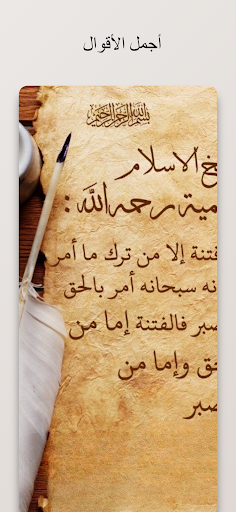 أجمل الأقوال
بسم الله الرحمن الرحيم
خ الاسلام
مية رحمه الله :
فتنة إلا من ترك ما أمر
نه سبحانه أمر بالحق
صبر فالفتنة إما من
حق وإما من
صبر